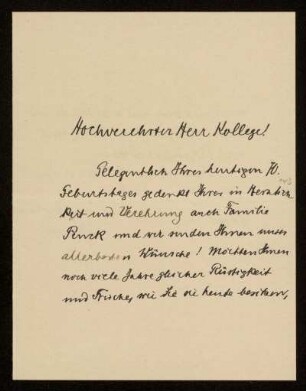 Hochverehrter Herr Kollege!
Gelegentlich Ihres heutigen 70.
Geburtstages gedenkt Ihrer in Herzlich-
keit und Verehrung auch Familie
und wir senden Ihnen unsere
allerbesten Wünsche! Möchten Ihnen
noch viele Jahre gleicher Rüstigkeit
und Frische, wie Sie sie heute besitzen,